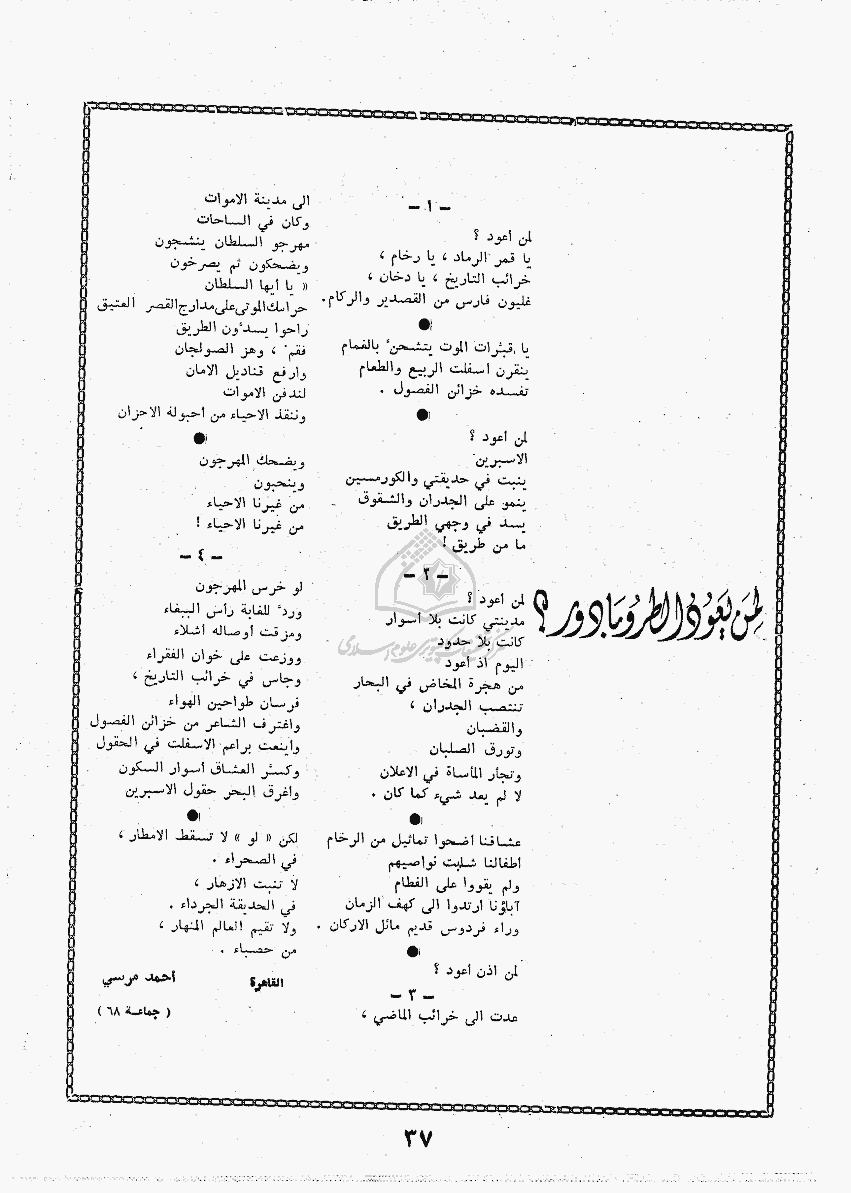 لمن يعود الطروبادور ؟
- ١ -
لمن أعود ؟
يا قمر الرماد ، يا رخام ،
خرائب التاريخ ، يا دخان ،
غليون فارس من القصدير والركام .
●
يا قبّرات الموت يتشحن بالغمام
ينقرن اسفلت الربيع والطعام
تفسده خزائن الفصول .
●
لمن أعود ؟
الاسبرين
ينبت في حديقتي والكورمسين
ينمو على الجدران والشقوق
يسد في وجهي الطريق
ما من طريق !
- ٢ -
لمن أعود ؟
مدينتي كانت بلا أسوار
كانت بلا حدود
اليوم اذ أعود
من هجرة المخاض في البحار
تنتصب الجدران ،
والقضبان
وتورق الصلبان
وتجأر المأساة في الاعلان
لا لم يعد شيء كما كان .
●
عشاقنا أضحوا تماثيل من الرخام
أطفالنا شابت نواصيهم
ولم يقووا على الفطام
آباؤنا ارتدوا الى كهف الزمان
وراء فردوس قديم مائل الاركان .
●
لمن اذن أعود ؟
- ٣ -
عدت الى خرائب الماضي ،
الى مدينة الاموات
وكان في الساحات
مهرجو السلطان ينشجون
ويضحكون ثم يصرخون
« يا أيها السلطان
حراسك الموتى على مدارج القصر العتيق
راحوا يسدّون الطريق
فقم ، وهز الصولجان
وارفع قناديل الامان
لندفن الاموات
وننقذ الاحياء من أحبولة الاحزان
●
ويضحك المهرجون
وينحبون
من غيرنا الاحياء
من غيرنا الاحياء !
- ٤ -
لو خرس المهرجون
وردّ للغابة رأس الببغاء
ومزقت أوصاله أشلاء
ووزعت على خوان الفقراء
وجاس في خرائب التاريخ ،
فرسان طواحين الهواء
واغترف الشاعر من خزائن الفصول
وأينعت براعم الاسفلت في الحقول
وكسّر العشاق أسوار السكون
واغرق البحر حقول الاسبرين
●
لكن « لو » لا تسقط الامطار ،
في الصحراء .
لا تنبت الازهار ،
في الحديقة الجرداء .
ولا تقيم العالم المنهار ،
من حصباء .
القاهرة أحمد مرسي
( جماعة ٦٨ )
٣٧